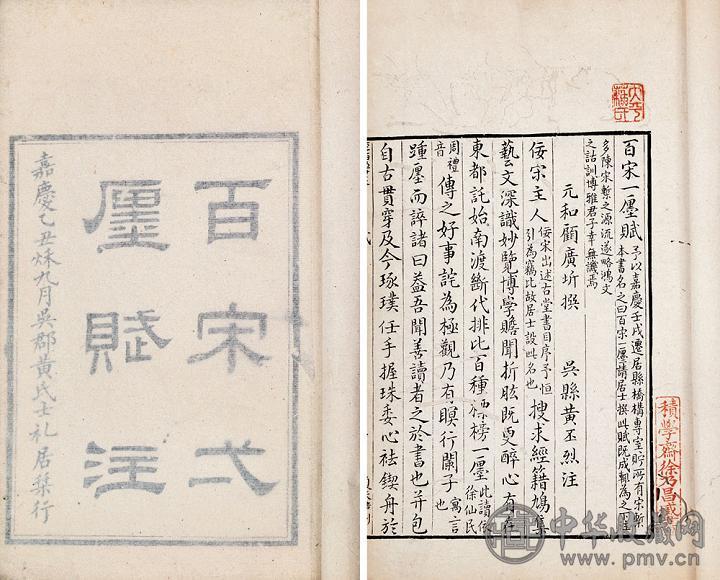 百宋弌
廛賦注
嘉慶乙丑秌九月吳郡黃氏士礼居栞行
百宋一廛賦
予以嘉慶壬戌遷居縣橋構專室貯所有宋槧
本書名之曰百宋一廛請居士撰此賦既成輒為之下注
多陳宋槧之源流遂略鴻文
之詁訓博雅君子幸無譏焉
元和顧廣圻撰 吳縣黃丕烈注
佞宋主人
佞宋出述古堂書目序予恒
引為竊比故居士設此名也
搜求經籍鳩集
藝文深識妙覽博學贍聞折肱既更醉心有在
東都託始南渡斷代排比百種標榜一廛
此讀依
徐仙民
周禮
音
傳之好事詫為極觀乃有瞑行闤子
寓言
也
踵廛而誶諸曰葢吾聞善讀者之於書也并包
自古貫穿及今琢璞任手握珠委心袪鍥舟於
積學齋徐乃昌藏書
中华收藏网
www.pmv.cn